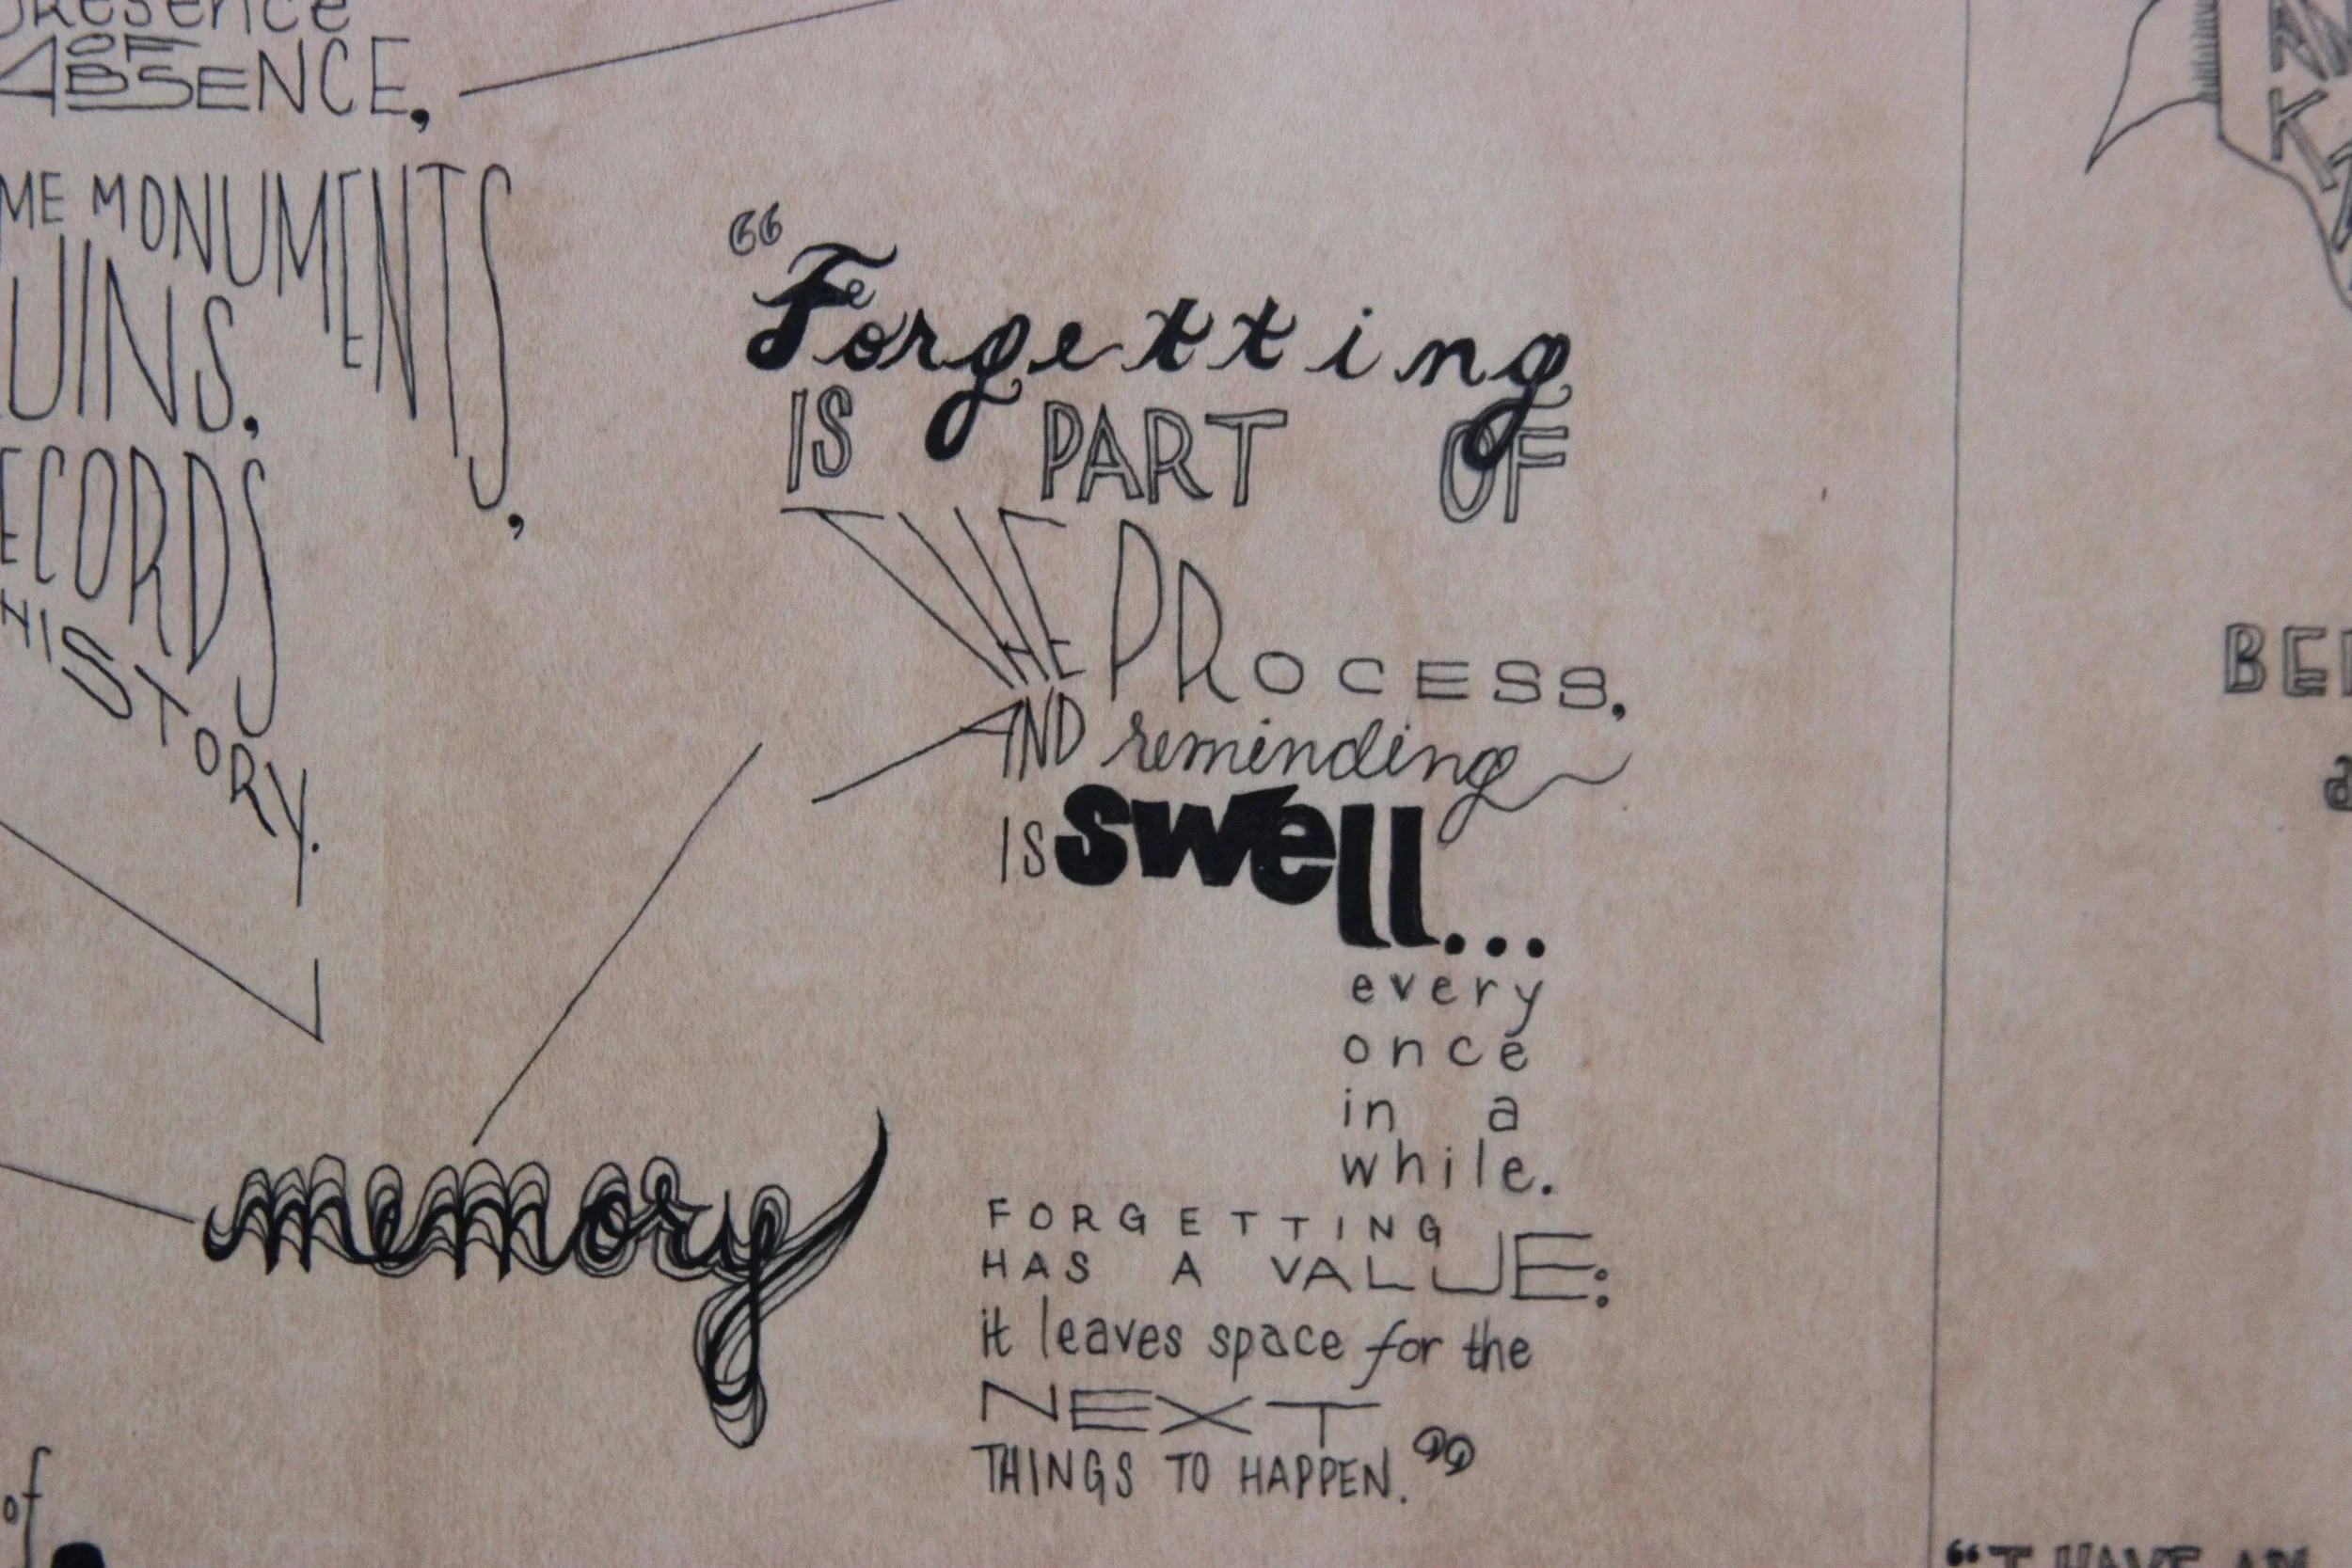 presence
OF
ABSENCE,
ME MONUMENTS,
UINS,
ECORDS
HISTORY.
“Forgetting
IS PART OF
THE PROCESS,
AND reminding
IS swell...
every
once
in a
while.
FORGETTING
HAS A VALUE:
it leaves space for the
NEXT
THINGS TO HAPPEN.”
memory
of
BE
a
“I HAVE AN